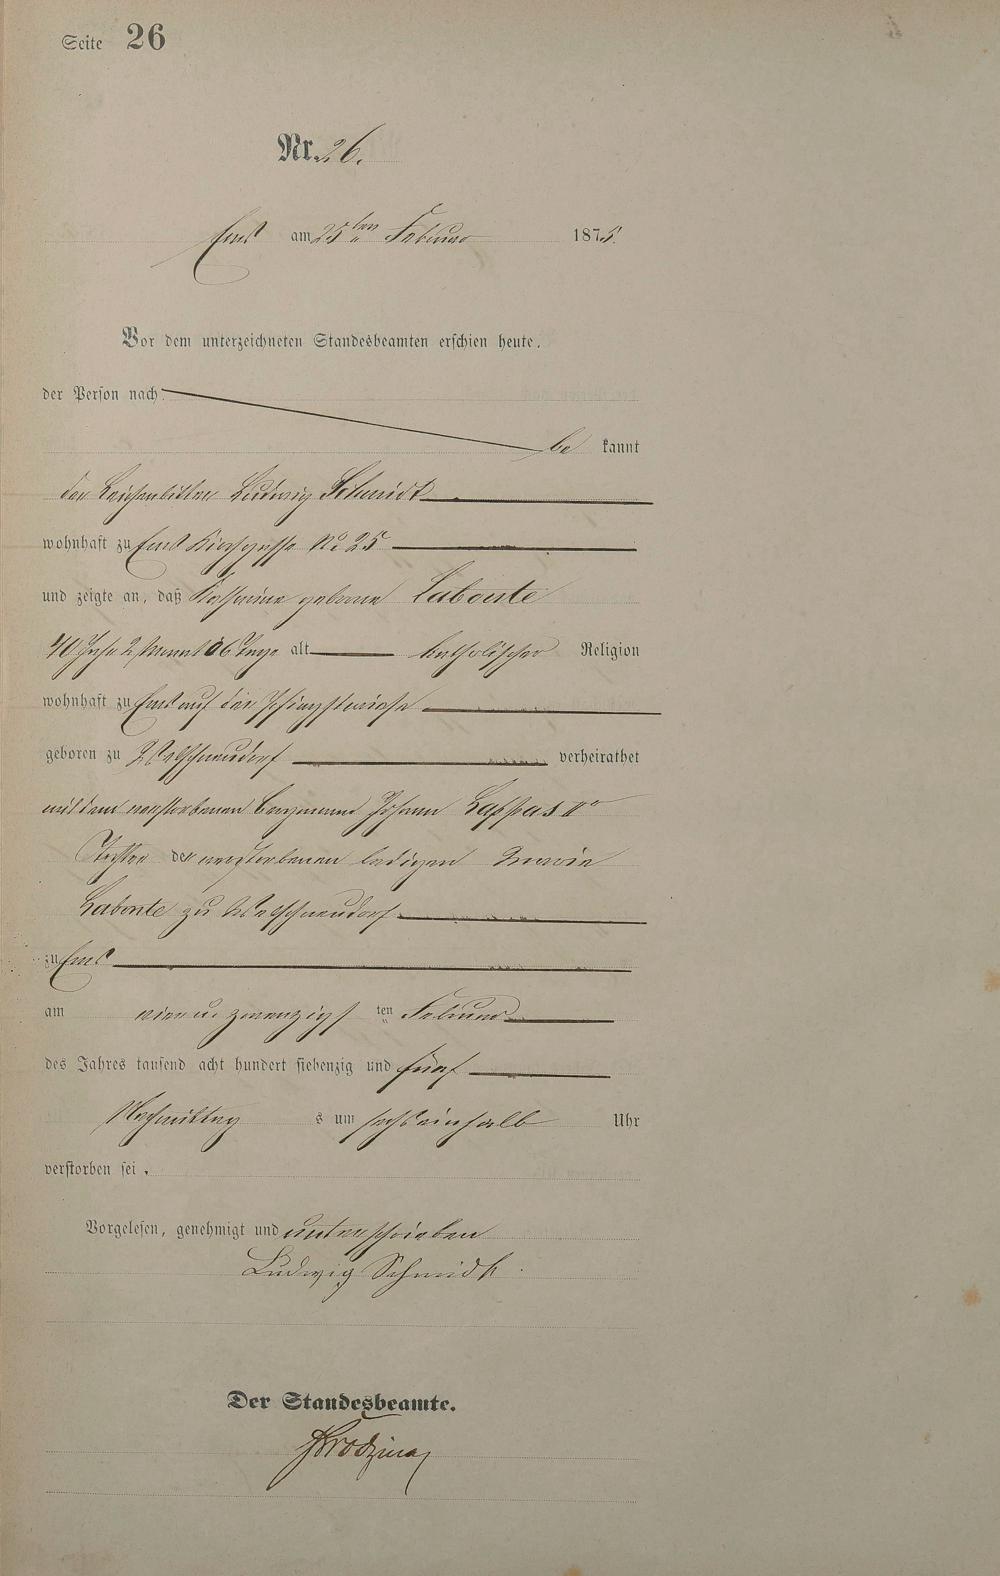 Seite 26
Nr. 26.
Ems am 25ten Februar 1875.
Vor dem unterzeichneten Standesbeamten erschien heute.
der Person nach
be kannt
der Leichenbitter Ludwig Schmidt
wohnhaft zu Ems Kirchgasse No 25
und zeigte an, daß Katharine geborene Labonte
40 Jahr 2 Monat 06 Tage alt katholischer Religion
wohnhaft zu Ems auf der Pfingstwiese
geboren zu Welschneudorf verheirathet
mit dem verstorbenen Bergmann Johann Lappas IIr
Tochter der verstorbenen ledigen Marie
Labonte zu Welschneudorf
zu Ems
am vier u. zwanzigs ten Februar
des Jahres tausend acht hundert siebenzig und fünf
Nachmittag s um sechseinhalb Uhr
verstorben sei.
Vorgelesen, genehmigt und unterschrieben
Ludwig Schmidt.
Der Standesbeamte.